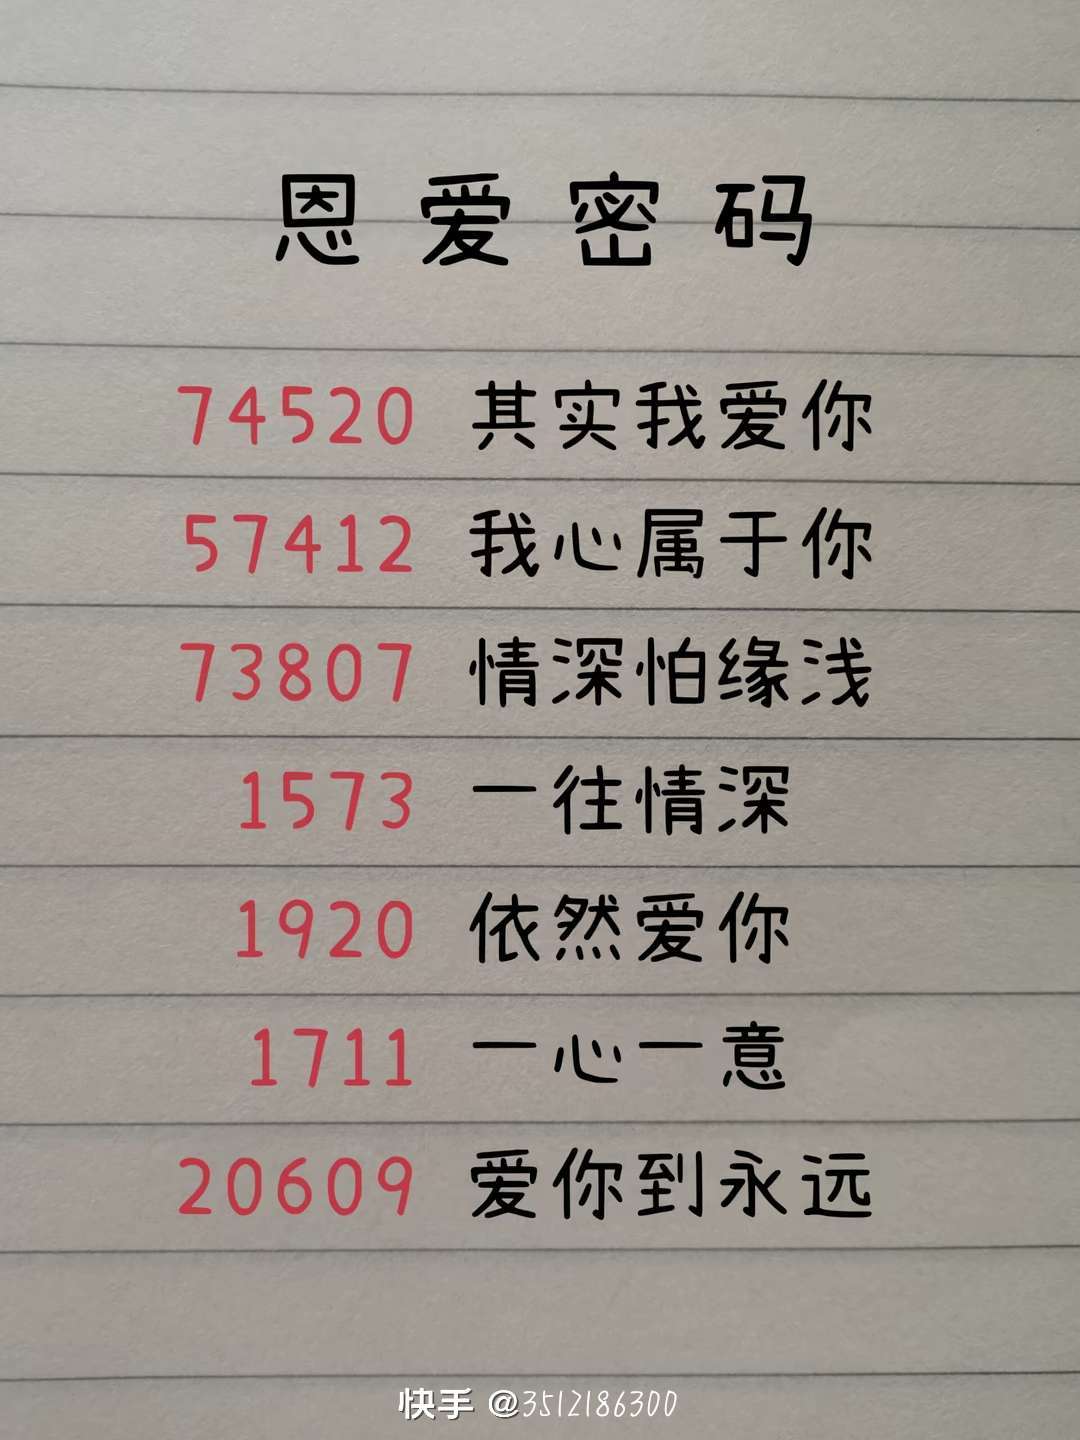 恩爱密码
74520 其实我爱你
57412 我心属于你
73807 情深怕缘浅
1573 一往情深
1920 依然爱你
1711 一心一意
20609 爱你到永远
快手 @3512186300